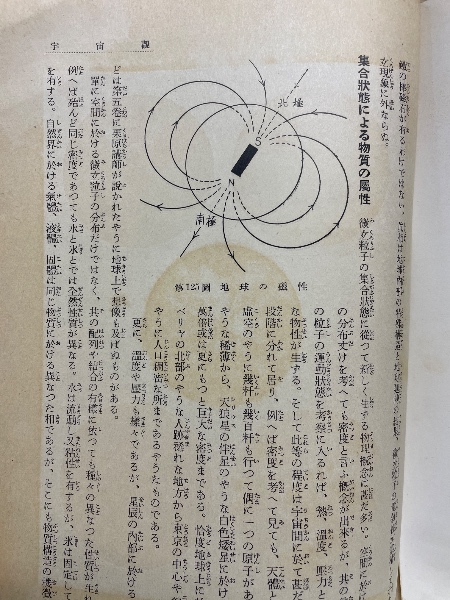 宇宙觀
立現象に外ならぬ。
集合狀態による物質の屬性
微な粒子の集合狀態に從つて新しく生ずる物理概念は誠だ多い。空間に於け
の分布だけを考へても密度と言ふ概念が出來るが、其の
の粒子の運動狀態を考察に入るれば、熱、溫度、壓力と
な物性が生ずる。そして此等の程度は宇宙間に於て甚だ
段階に分れて居り、例へば密度を考へて見ても、天體と
虛空のやうに幾秆も幾百秆も行つて偶に一つの原子があ
やうな稀薄から、天狼星の伴星のやうな白色矮星に於け
萬倍或は更にもつと巨大な密度まである。恰度地球上に
ベリヤの北部のやうな人跡稀れな地方から東京の中心や
やうに人口稠密な所まであるやうなものである。
更に、溫度や壓力も種々であるが、星辰の內部に於ける
北極
S
N
南極
第125圖 地球の磁性
どは第五卷に萩原講師が說かれたやうに地球上で想像も及ばぬものがある。
單に空間に於ける微粒子の分布だけではなく、其の配列や結合の有樣に依つても種々の異なつた性質が生れ
例へば殆んど同じ密度であつても水と氷とでは全然性質が異なる。水は流動し又粘性を有するが、氷は固定して
を有する。自然界に於ける氣體、液體、固體は同じ物質に於ける異なつた相であるが、そこにも物質構造の微微